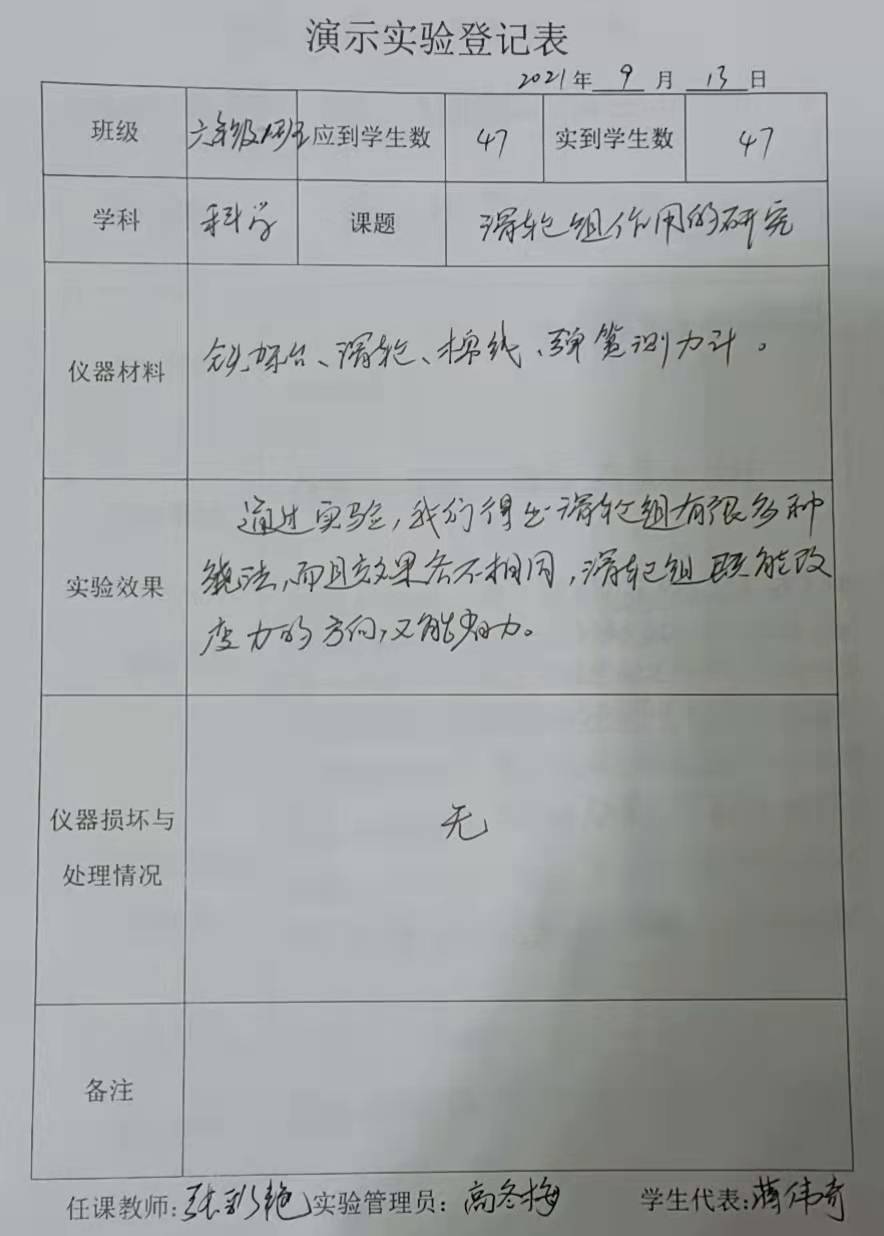 演示实验登记表
2021年 9 月 13 日
班级 六年级1班 应到学生数 47 实到学生数 47
学科 科学 课题 滑轮组作用的研究
仪器材料 铁架台、滑轮、棉线、弹簧测力计。
实验效果 通过实验,我们得出滑轮组有很多种
绕法,而且效果各不相同,滑轮组既能改
变力的方向,又能省力。
仪器损坏与
处理情况
无
备注
任课教师:张彩艳 实验管理员:高冬梅 学生代表:蒋伟奇